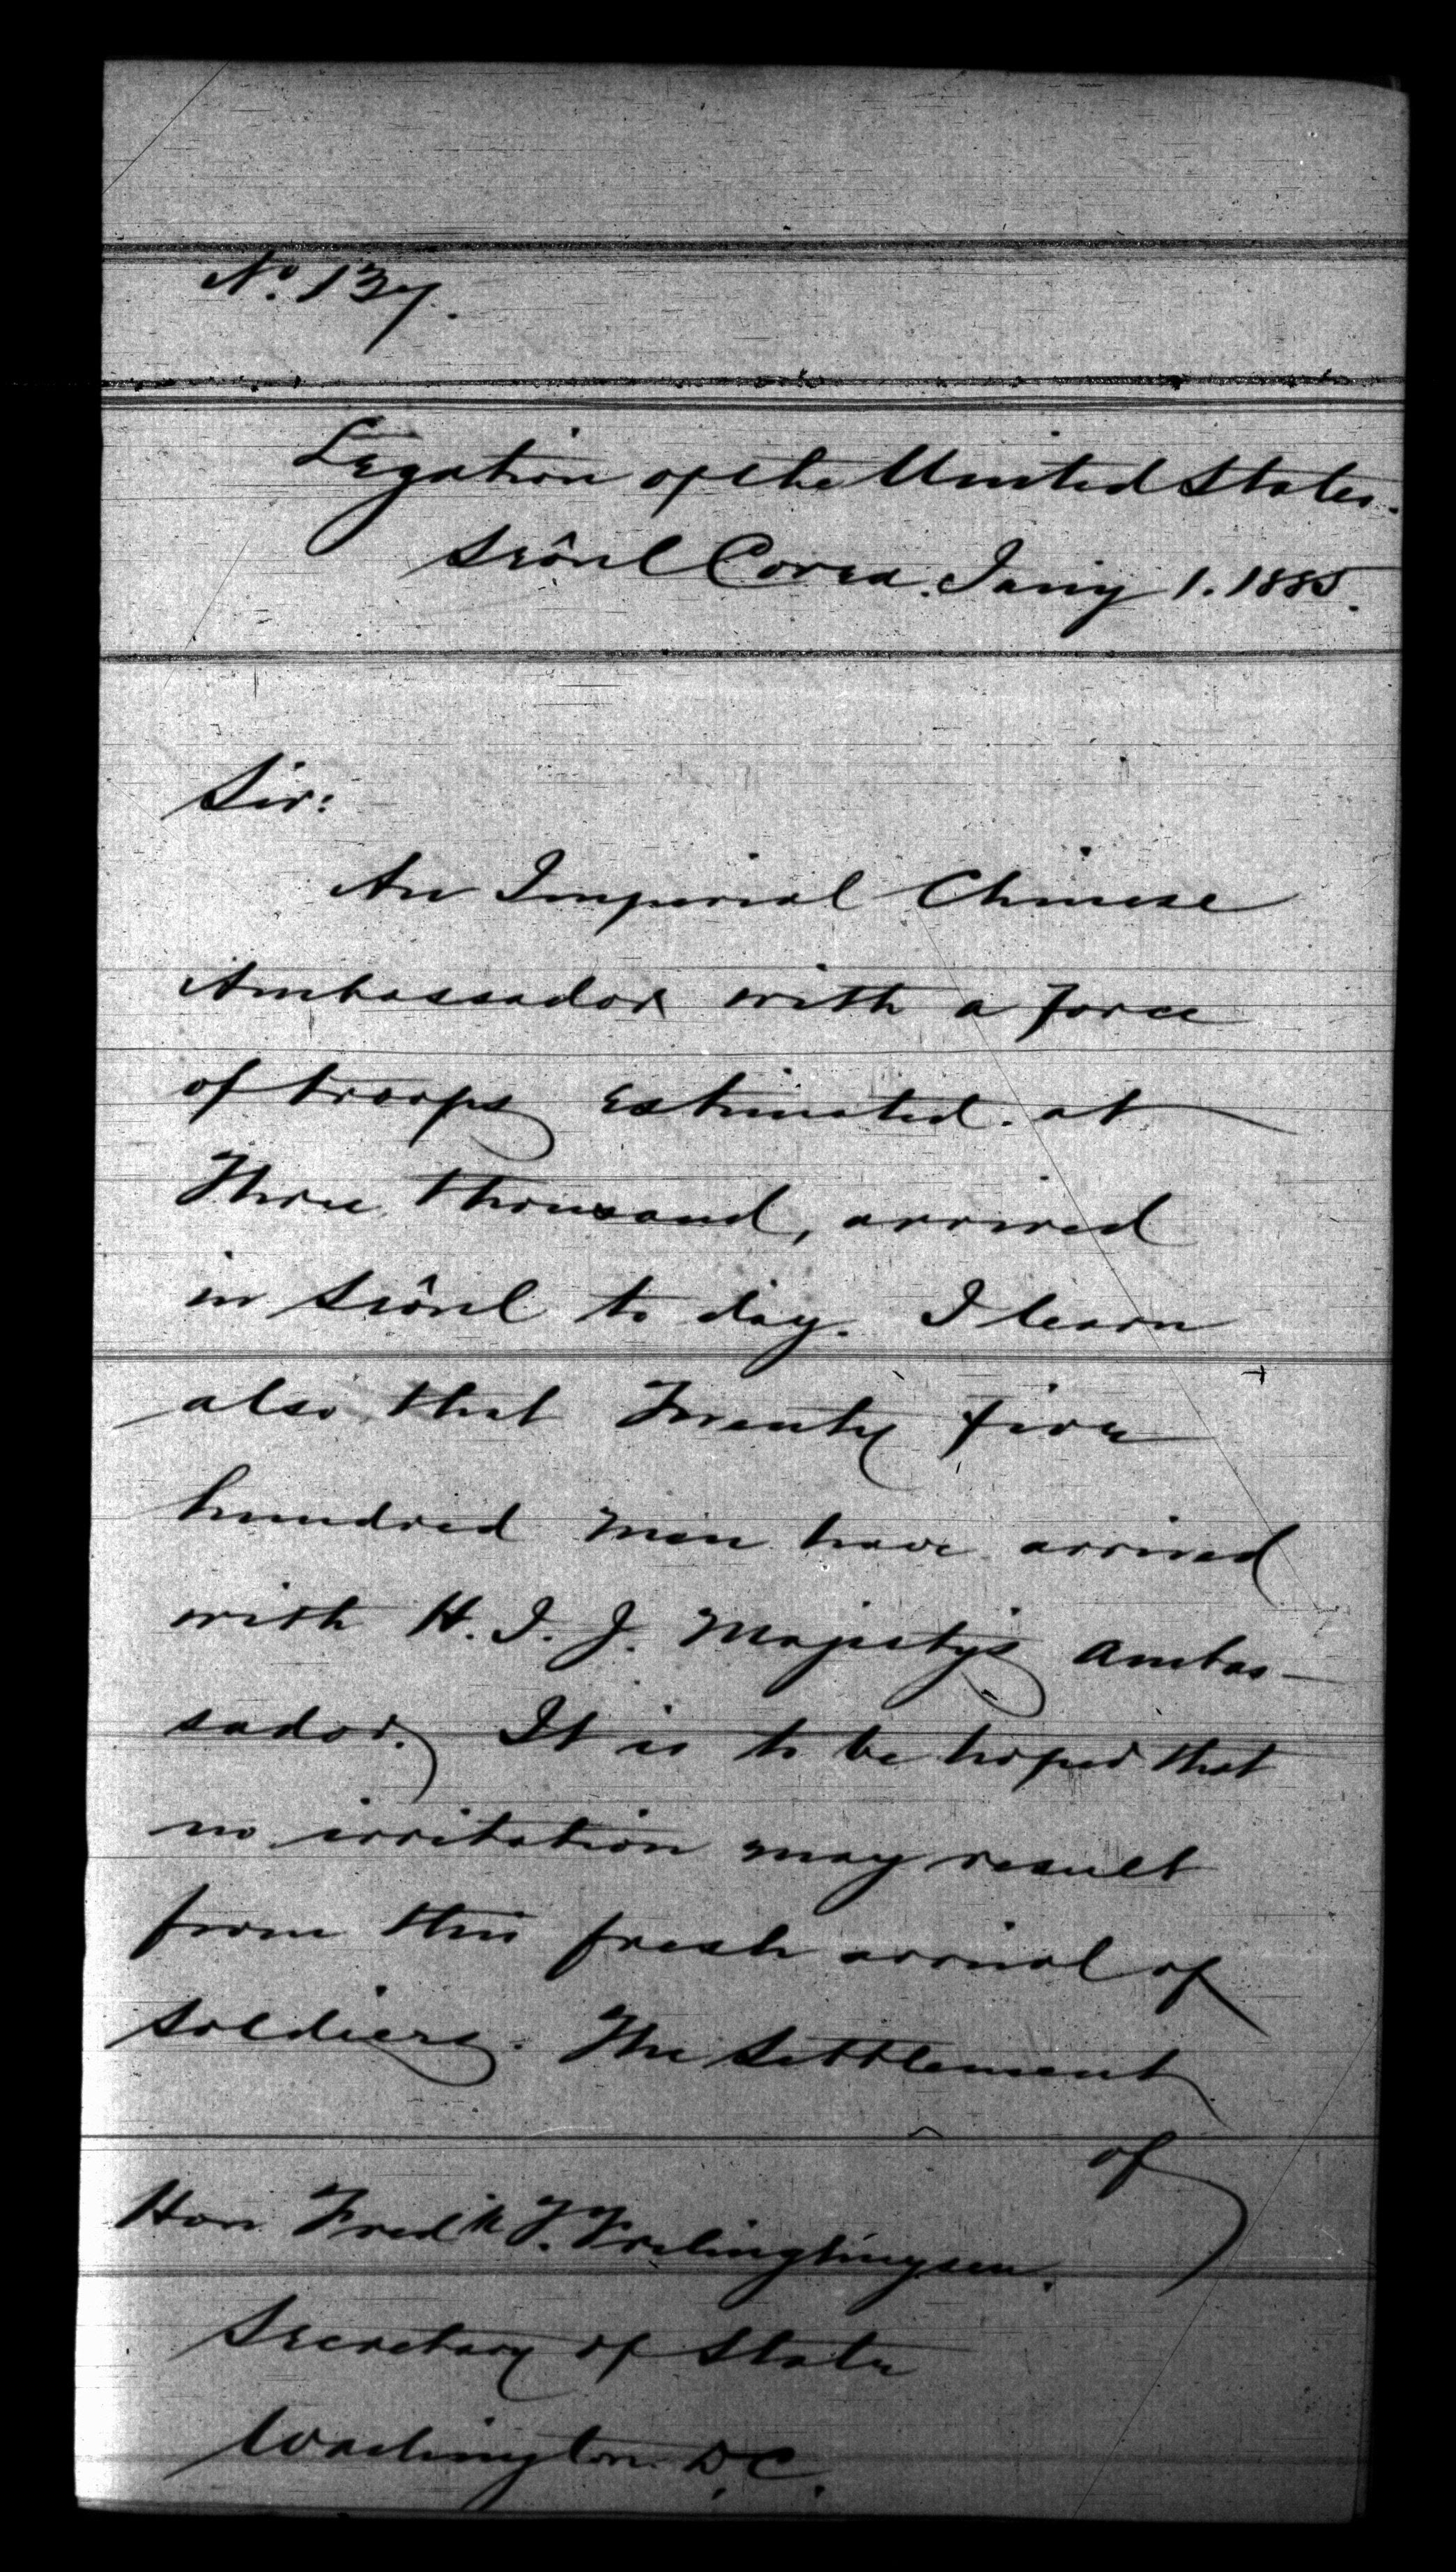 No. 137.
Legation of the United States.
Seôul Corea. Jany 1. 1885.
Sir:
An Imperial Chinese
Ambassador with a force
of troops estimated at
Three thousand, arrived
in Seôul to day. I learn
also that Twenty five
hundred men have arrived
with H. I. J. Majesty's Ambas-
sador. It is to be hoped that
no irritation may result
from this fresh arrival of
soldiers. The settlement
of
Hon Fredk T. Frelinghuysen.
Secretary of State
Washington. D.C.